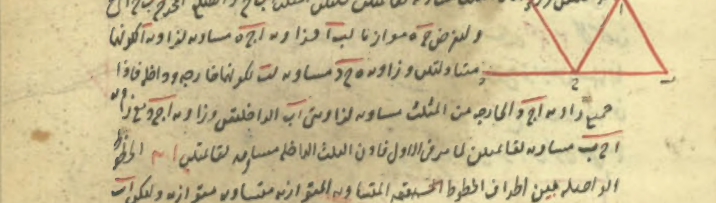 ولنفرض جه موازيا لبا فزاوية اجه مساوية لزاوية ا لكونهما
متبادلتين وزاوية هجد مساوية لب لكونهما خارجه وداخله فاذا
جميع زاوية اجد الخارجه من المثلث مساوية لزاويتى اب الداخلتين وزاوية اجد مع زاوية
اجب مساوية لقائمتين لما مر فى الاول فاذن الثلث الداخله مساويه لقائمتين الخطوط
الواصله بين اطراف الخطوط المستقيمه المتساويه المتوازيه متساويه متوازيه وليكن اب